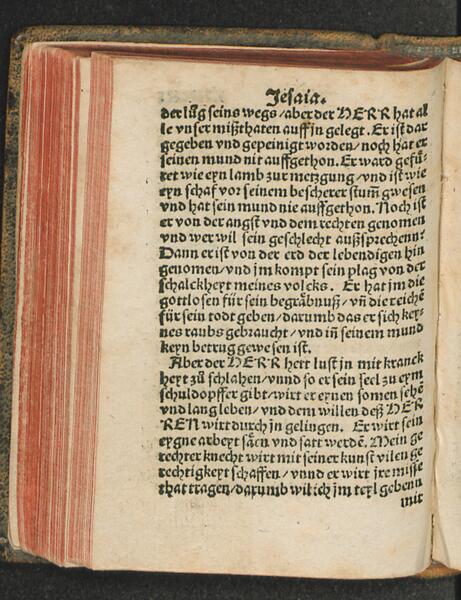 Jesaia.
der lůg seins wegs / aber der HERR hat al
le vnser mißthaten auff jn gelegt. Er ist dar
gegeben vnd gepeinigt worden / noch hat er
seinen mund nit auffgethon. Er ward gefü-
ret wie eyn lamb zur metzgung / vnd ist wie
eyn schaf vor seinem bescherer stum̃ gwesen
vnd hat sein mund nie auffgethon. Noch ist
er von der angst vnd dem rechten genomen
vnd wer wil sein geschlecht außsprechenn?
Dann er ist von der erd der lebendigen hin
genomen / vnd jm kompt sein plag von der
schalckheyt meines volcks. Er hat jm die
gottlosen für sein begräbnuß / vñ die reichẽ
für sein todt geben / darumb das er sich key-
nes raubs gebraucht / vnd iñ seinem mund
keyn betrug gewesen ist.
Aber der HERR hett lust jn mit kranck
heyt zů schlahen / vnnd so er sein seel zu eym
schuldopffer gibt / wirt er eynen somen sehẽ
vnd lang leben / vnd dem willen deß HER
REN wirt durch jn gelingen. Er wirt sein
eygne arbeyt säen vnd satt werdẽ. Mein ge
rechter knecht wirt mit seiner kunst vilen ge
rechtigkeyt schaffen / vnnd er wirt jre misse
that tragen / darumb wil ich jm teyl gebenn
mit